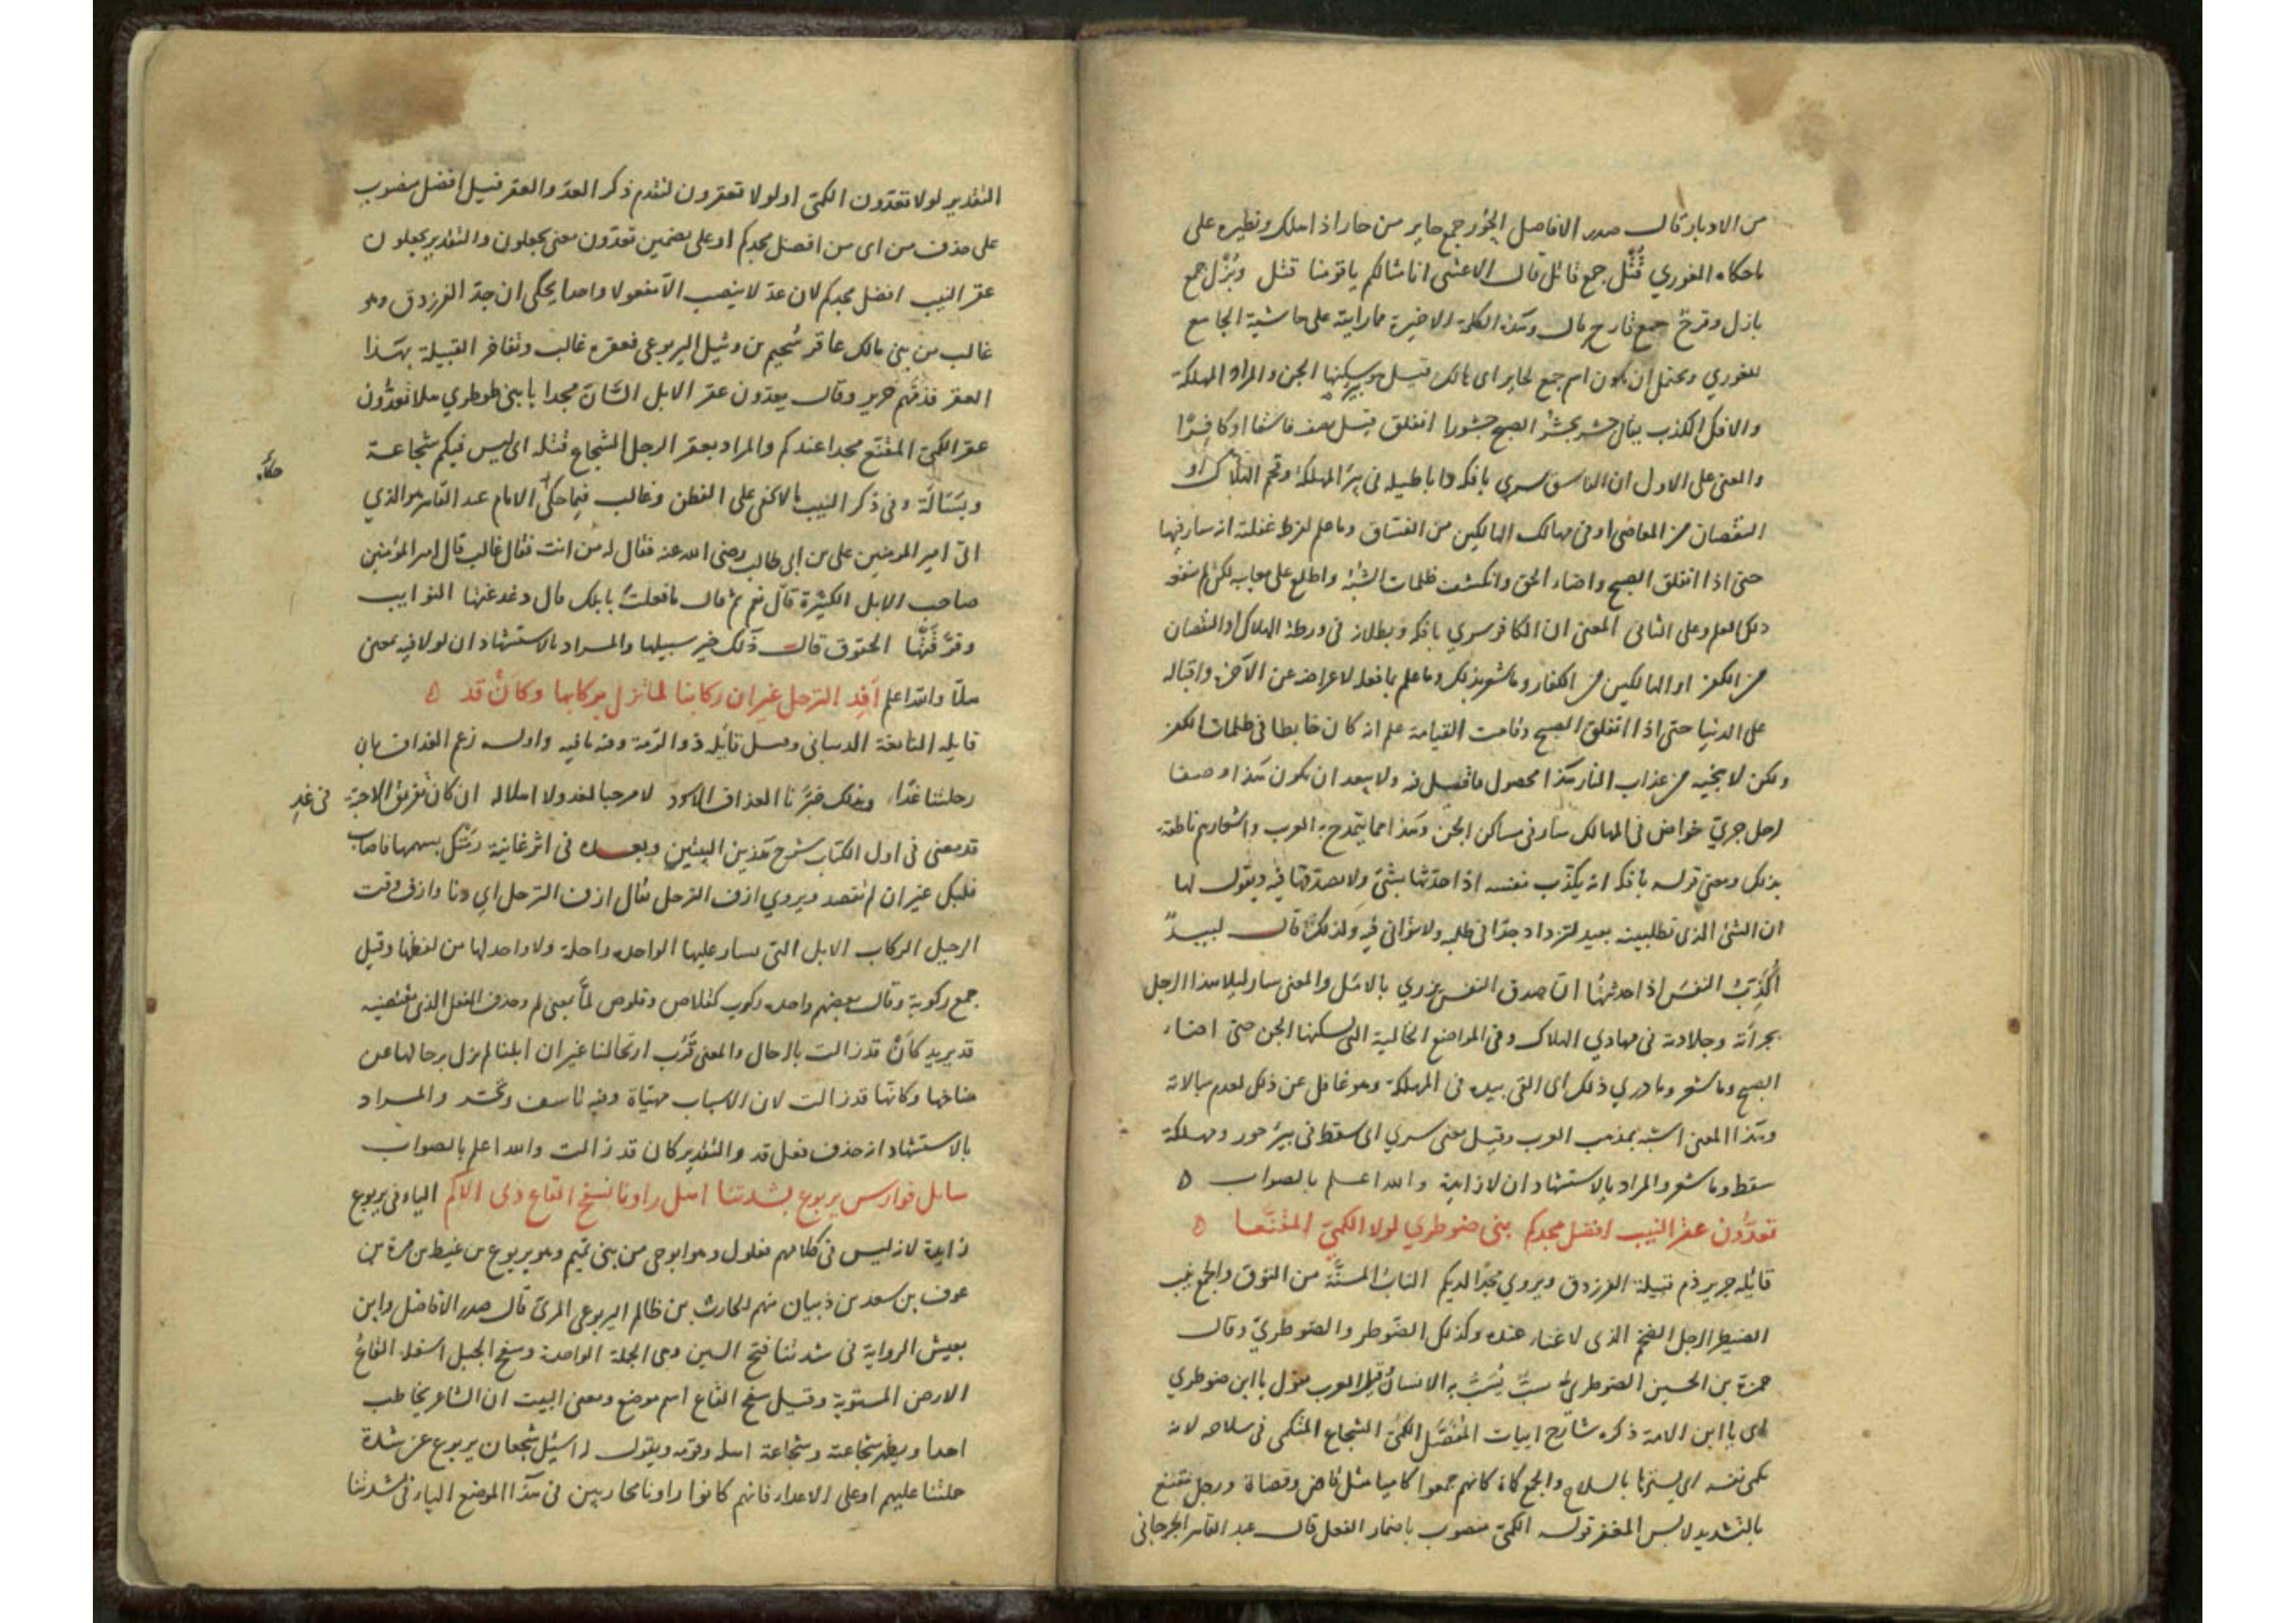 من الادبار قال صدر الافاضل الحُور جمع حاير من حار اذا هلك ونظيره على
ما حكاه الغوري قُتُل جمع قاتل قال الاعشى انا امثالكم يا قومنا قتل وبُزُل جمع
بازل وقرح جمع قارح قال وهذه الكلمة الاخيرة مما رايته على حاشية الجامع
للغوري ويحتمل ان يكون اسم جمع لحاير اى هالك قيل هو بير يسكنها الجن والمراد المهلكة
والافك الكذب يقال جشر يجشُر الصبح جشورا انفلق قيل يصف فاسقا او كافرًا
والمعنى على الاول ان الفاسق سرى بافكه واباطيله فى بئر المهلكة وقحم الهلاك او
النقصان من المعاصى او فى مهالك الهالكين من الفساق وما علم لفرط غفلته انه سار فيها
حتى اذا انفلق الصبح واضاء الحق وانكشف ظلمات الشُّبَه واطلع على معايبه لكن لم ينفعه
ذلك العلم وعلى الثانى المعنى ان الكافر سرى بافكه وبطلانه فى ورطة الهلاك او النقصان
من الكفر او الهالكين من الكفار وما شعر بذلك وما علم ما فعله لاعراضه عن الآخرة واقباله
على الدنيا حتى اذا انفلق الصبح وقامت القيامة علم انه كان خابطا فى ظلمات الكفر
ولكن لا ينجيه من عذاب النار هذا محصول ما قيل فيه ولا يبعد ان يكون هذا وصفا
لرجل جرىّ خواض فى المهالك سار فى مساكن الجن وهذا مما يتمدح به العرب واشعارهم ناطقة
بذلك ومعنى قوله بافكه انه يكذّب نفسه اذا حدثها بشئ ولا يصدقها فيه ويقول لها
ان الشئ الذى تطلبينه بعيد لتزداد جدّا فى طلبه ولا تتوانى فيه ولذلك قال لبيد
اكذب النفسَ اذا حدثتها ان صدق النفس يزرى بالامل والمعنى سار ليلا هذا الرجل
بجرأته وجلادته فى مهاوى الهلاك وفى المواضع الخالية التى يسكنها الجن حتى اضاء
الصبح وما شعر وما درى ذلك اى القى بيده فى المهلكة وهو غافل عن ذلك لعدم مبالاته
وهذا المعنى اشبه بمذهب العرب وقيل معنى سرى اى سقط فى بير حور ومهلكة
سقط وما شعر والمراد بالاستشهاد ان لا زايدة والله اعلم بالصواب
تعدُّون عقر النيب افضل مجدكم بنى ضوطرى لولا الكمىّ المقنَّعا
قائله جرير ذم قبيلة الفرزدق ويروى مجدا لديكم الناب المسنّة من النوق والجمع نيب
الضيطر الرجل الضخم الذى لا غناء عنده وكذلك الضوطر والضوطرى وقال
حمزة بن الحسين الضوطرى سبّ يُسَبّ به الانسان قيل العرب تقول يا ابن ضوطرى
اى يا ابن الامة ذكره شارح ابيات المفصّل الكمىّ الشجاع المتكمى فى سلاحه لانه
كمى نفسه اى يسترها بالسلاح والجمع كماة كانهم جمعوا كاميا مثل قاض وقضاة ورجل مقنّع
بالتشديد لابس المغفر قوله الكمىّ منصوب باضمار الفعل قال عبد القاهر الجرجانى
التقدير لولا تعدّون الكمى او لولا تعقرون لتقدم ذكر العدّ والعقر قيل افضل منصوب
على حذف من اى من افضل مجدكم او على تضمين تعدّون معنى يجعلون والتقدير يجعلون
عقر النيب افضل مجدكم لان عدّ لا ينصب الا مفعولا واحدا يحكى ان جدّ الفرزدق وهو
غالب من بنى مالك عاقر سُحيم بن وثيل اليربوعى فعقره غالب وتفاخر القبيلة بهذا
العقر فذمّهم جرير وقال يعدّون عقر الابل المسانّ مجدا يا بنى ضوطرى هلا تعدّون
عقر الكمى المقنّع مجدا عندكم والمراد بعقر الرجل الشجاع قتله اى ليس فيكم شجاعة
وبَسَالَة وفى ذكر النيب ما لا يخفى على الفطن وغالب فيما حكى الامام عبد القاهر هو الذى
حكاه
اتى امير المومنين على بن ابى طالب رضى الله عنه فقال له من انت فقال غالب قال امير المؤمنين
صاحب الابل الكثيرة قال نعم ثم قال ما فعلت بابلك قال دغدغتها النوايب
وفرّقتها الحقوق قال ذلك خير سبيلها والمراد بالاستشهاد ان لولا فيه بمعنى
هلّا والله اعلم اَفِد الترحل غير ان ركابنا لما تزل برحالها وكأن قد
قايله النابغة الذبيانى وقيل قائله ذو الرّمة وفيه ما فيه واوله زعم الغداف بان
رحلتنا غدًا وبذلك خبّرنا الغداف الاسود لا مرحبا بغد ولا اهلا به ان كان تفريق الاحبّة فى غدِ
قد معنى فى اول الكتاب شرح هذين البيتين وبعده فى اثر غانية رمتك بسهمها فاصاب
قلبك غير ان لم تقصد ويروى ازف الترحل يقال ازف الترحل اى دنا وازف وقت
الرحيل الركاب الابل التى يسار عليها الواحدة راحلة ولا واحد لها من لفظها وقيل
جمع ركوبة وقال بعضهم واحده ركوب كقلاص وقلوص لمّا بمعنى لم وحذف الفعل الذى يقتضيه
قد يريد كأن قد زالت بالرحال والمعنى قَرُب ارتحالنا غير ان ابلنا لم تزل برحالها عن
مناخها وكانّها قد زالت لان الاسباب مهيّاة وفيه تاسف وتحسّر والمراد
بالاستشهاد انه حذف فعل قد والتقدير كان قد زالت والله اعلم بالصواب
سايل فوارس يربوع بشدتنا اهل راونا بسفح القاع ذى الاكم الياء فى يربوع
زايدة لانه ليس فى كلامهم فعلول وهو ابو حى من بنى تميم وهو يربوع بن غيط بن مرة بن
عوف بن سعد بن ذبيان منهم الحارث بن ظالم اليربوعى المرىّ قال صدر الافاضل وابن
يعيش الرواية فى شدتنا فتح الشين وهى الحملة الواحدة وسفح الجبل اسفله القاع
الارض المستوية وقيل سفح القاع اسم موضع ومعنى البيت ان الشاعر يخاطب
احدا ويظهر شجاعته وشجاعة اهله وقومه ويقول له اسئل شجعان يربوع عن شدة
حملتنا عليهم او على الاعداء فانهم كانوا راونا محاربين فى هذا الموضع الباء فى بشدتنا